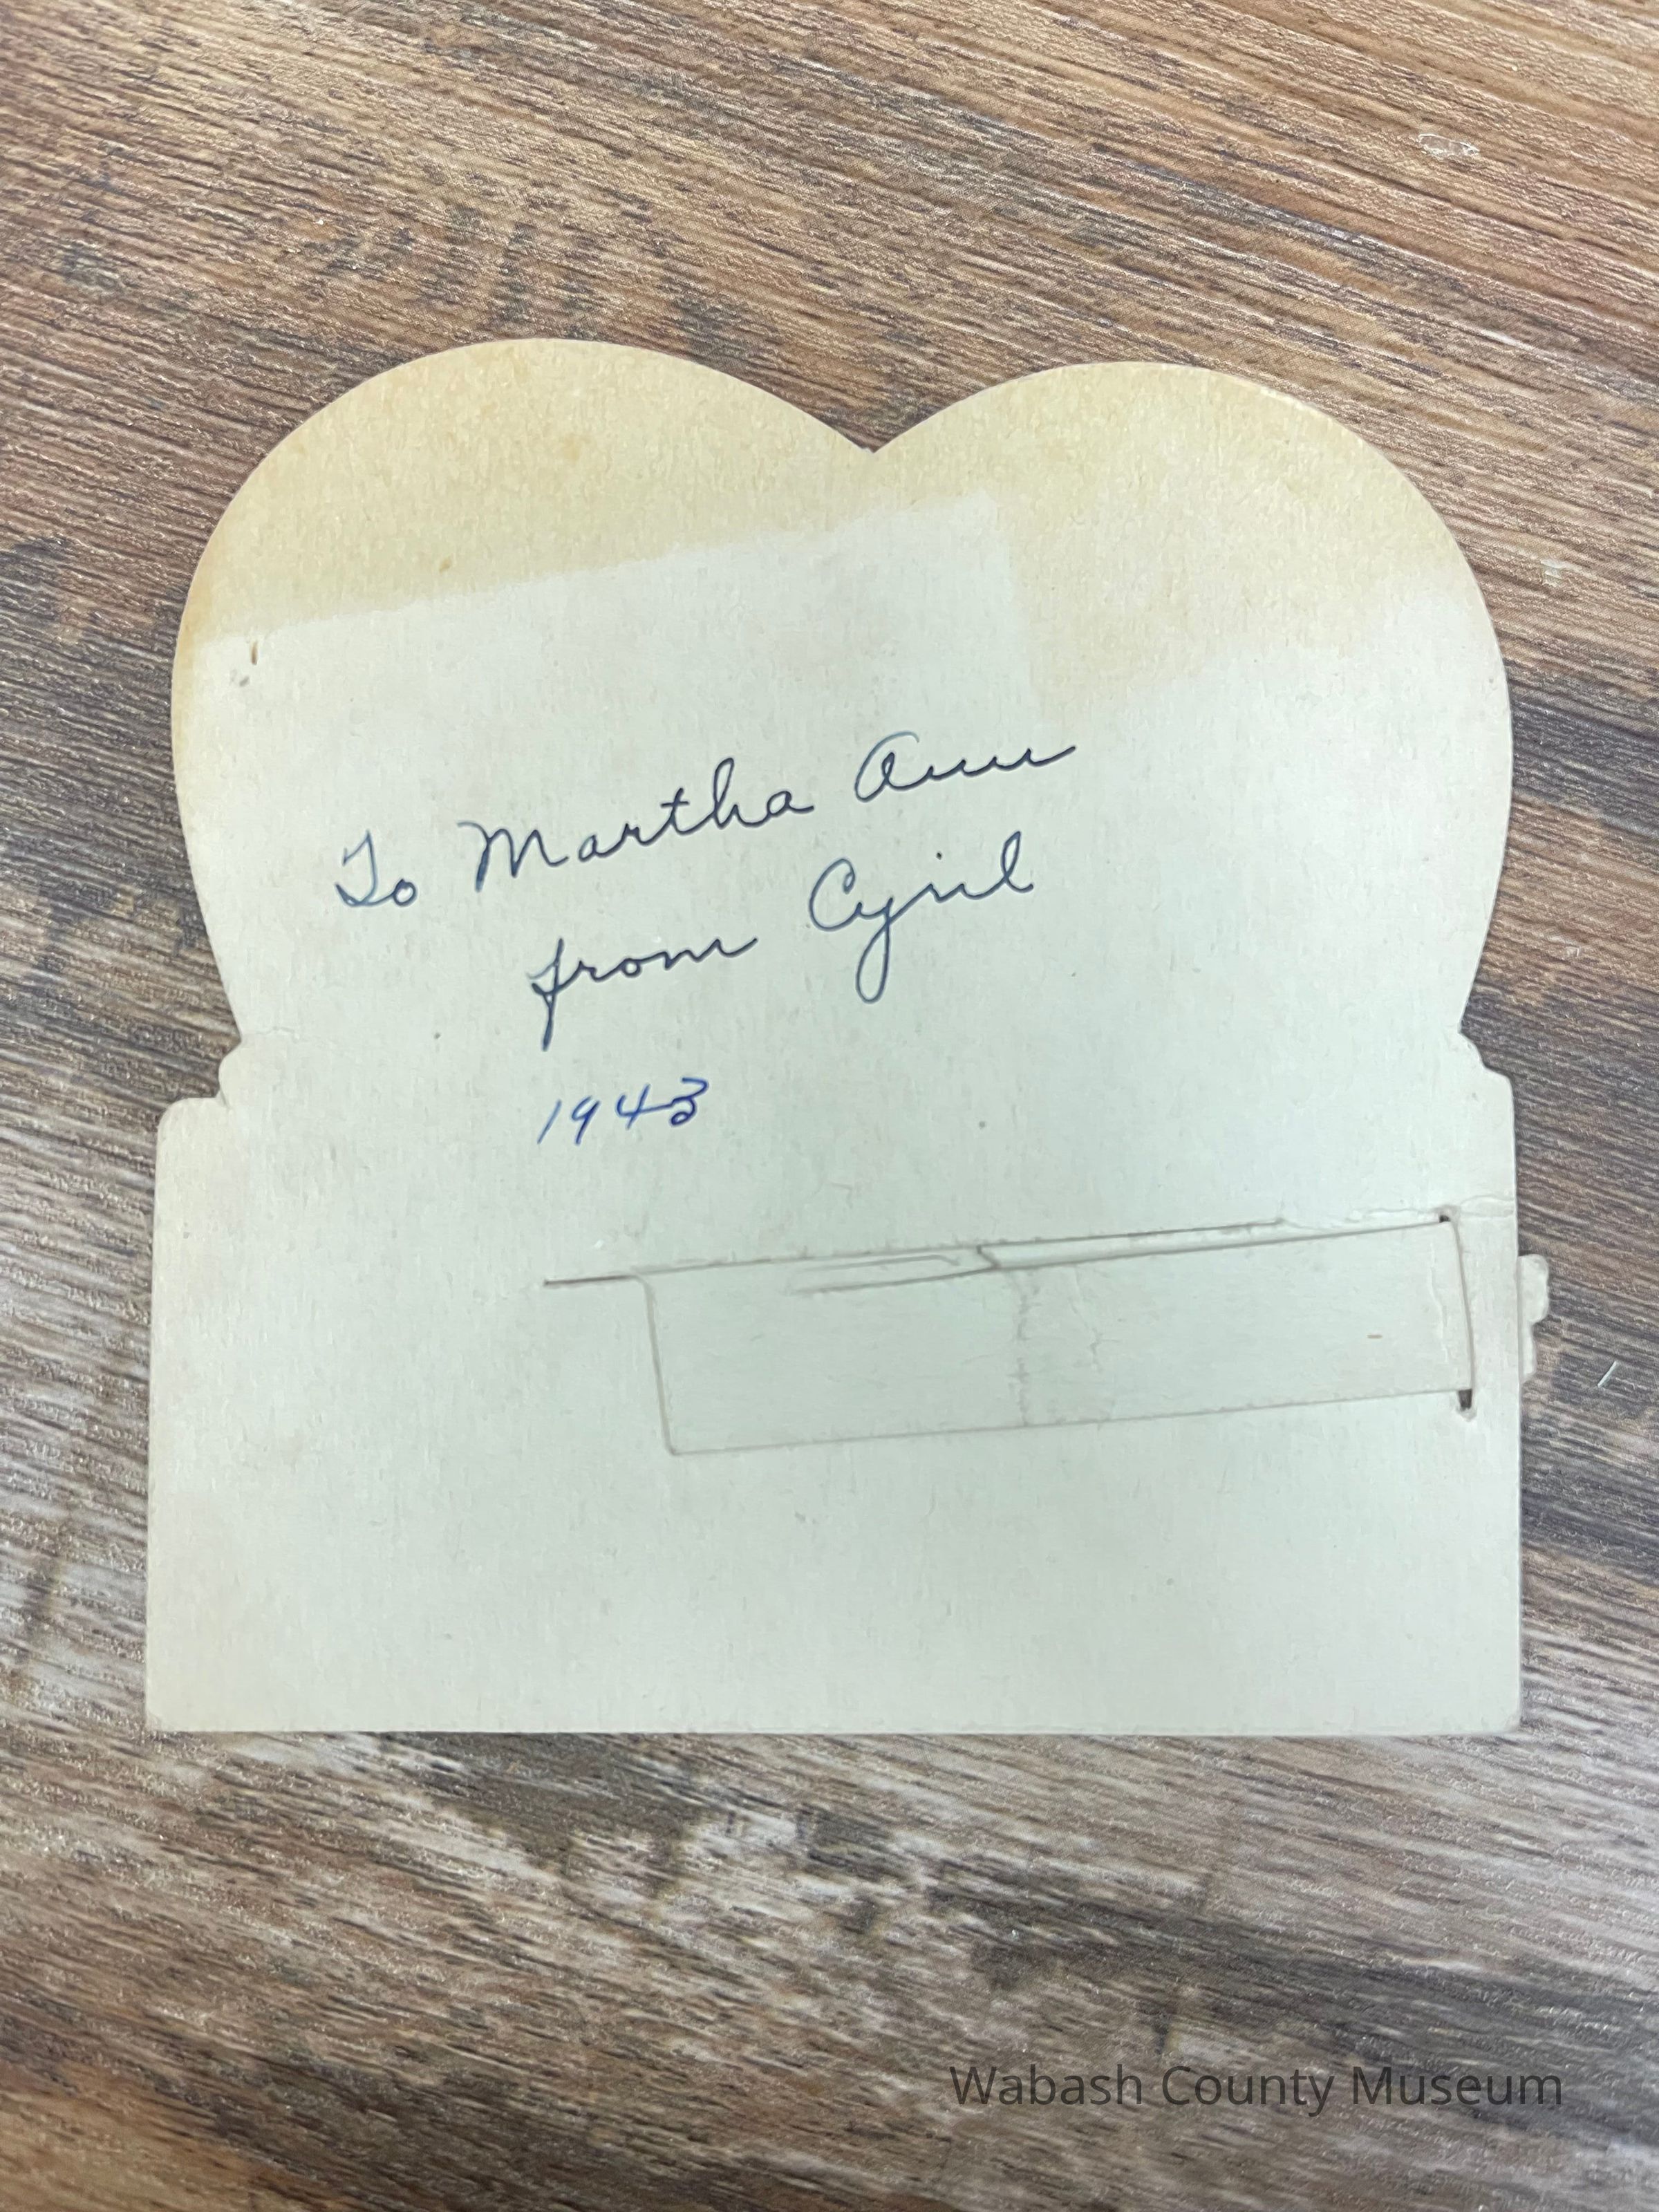 To Martha Ann
from Cyril
1943
Wabash County Museum